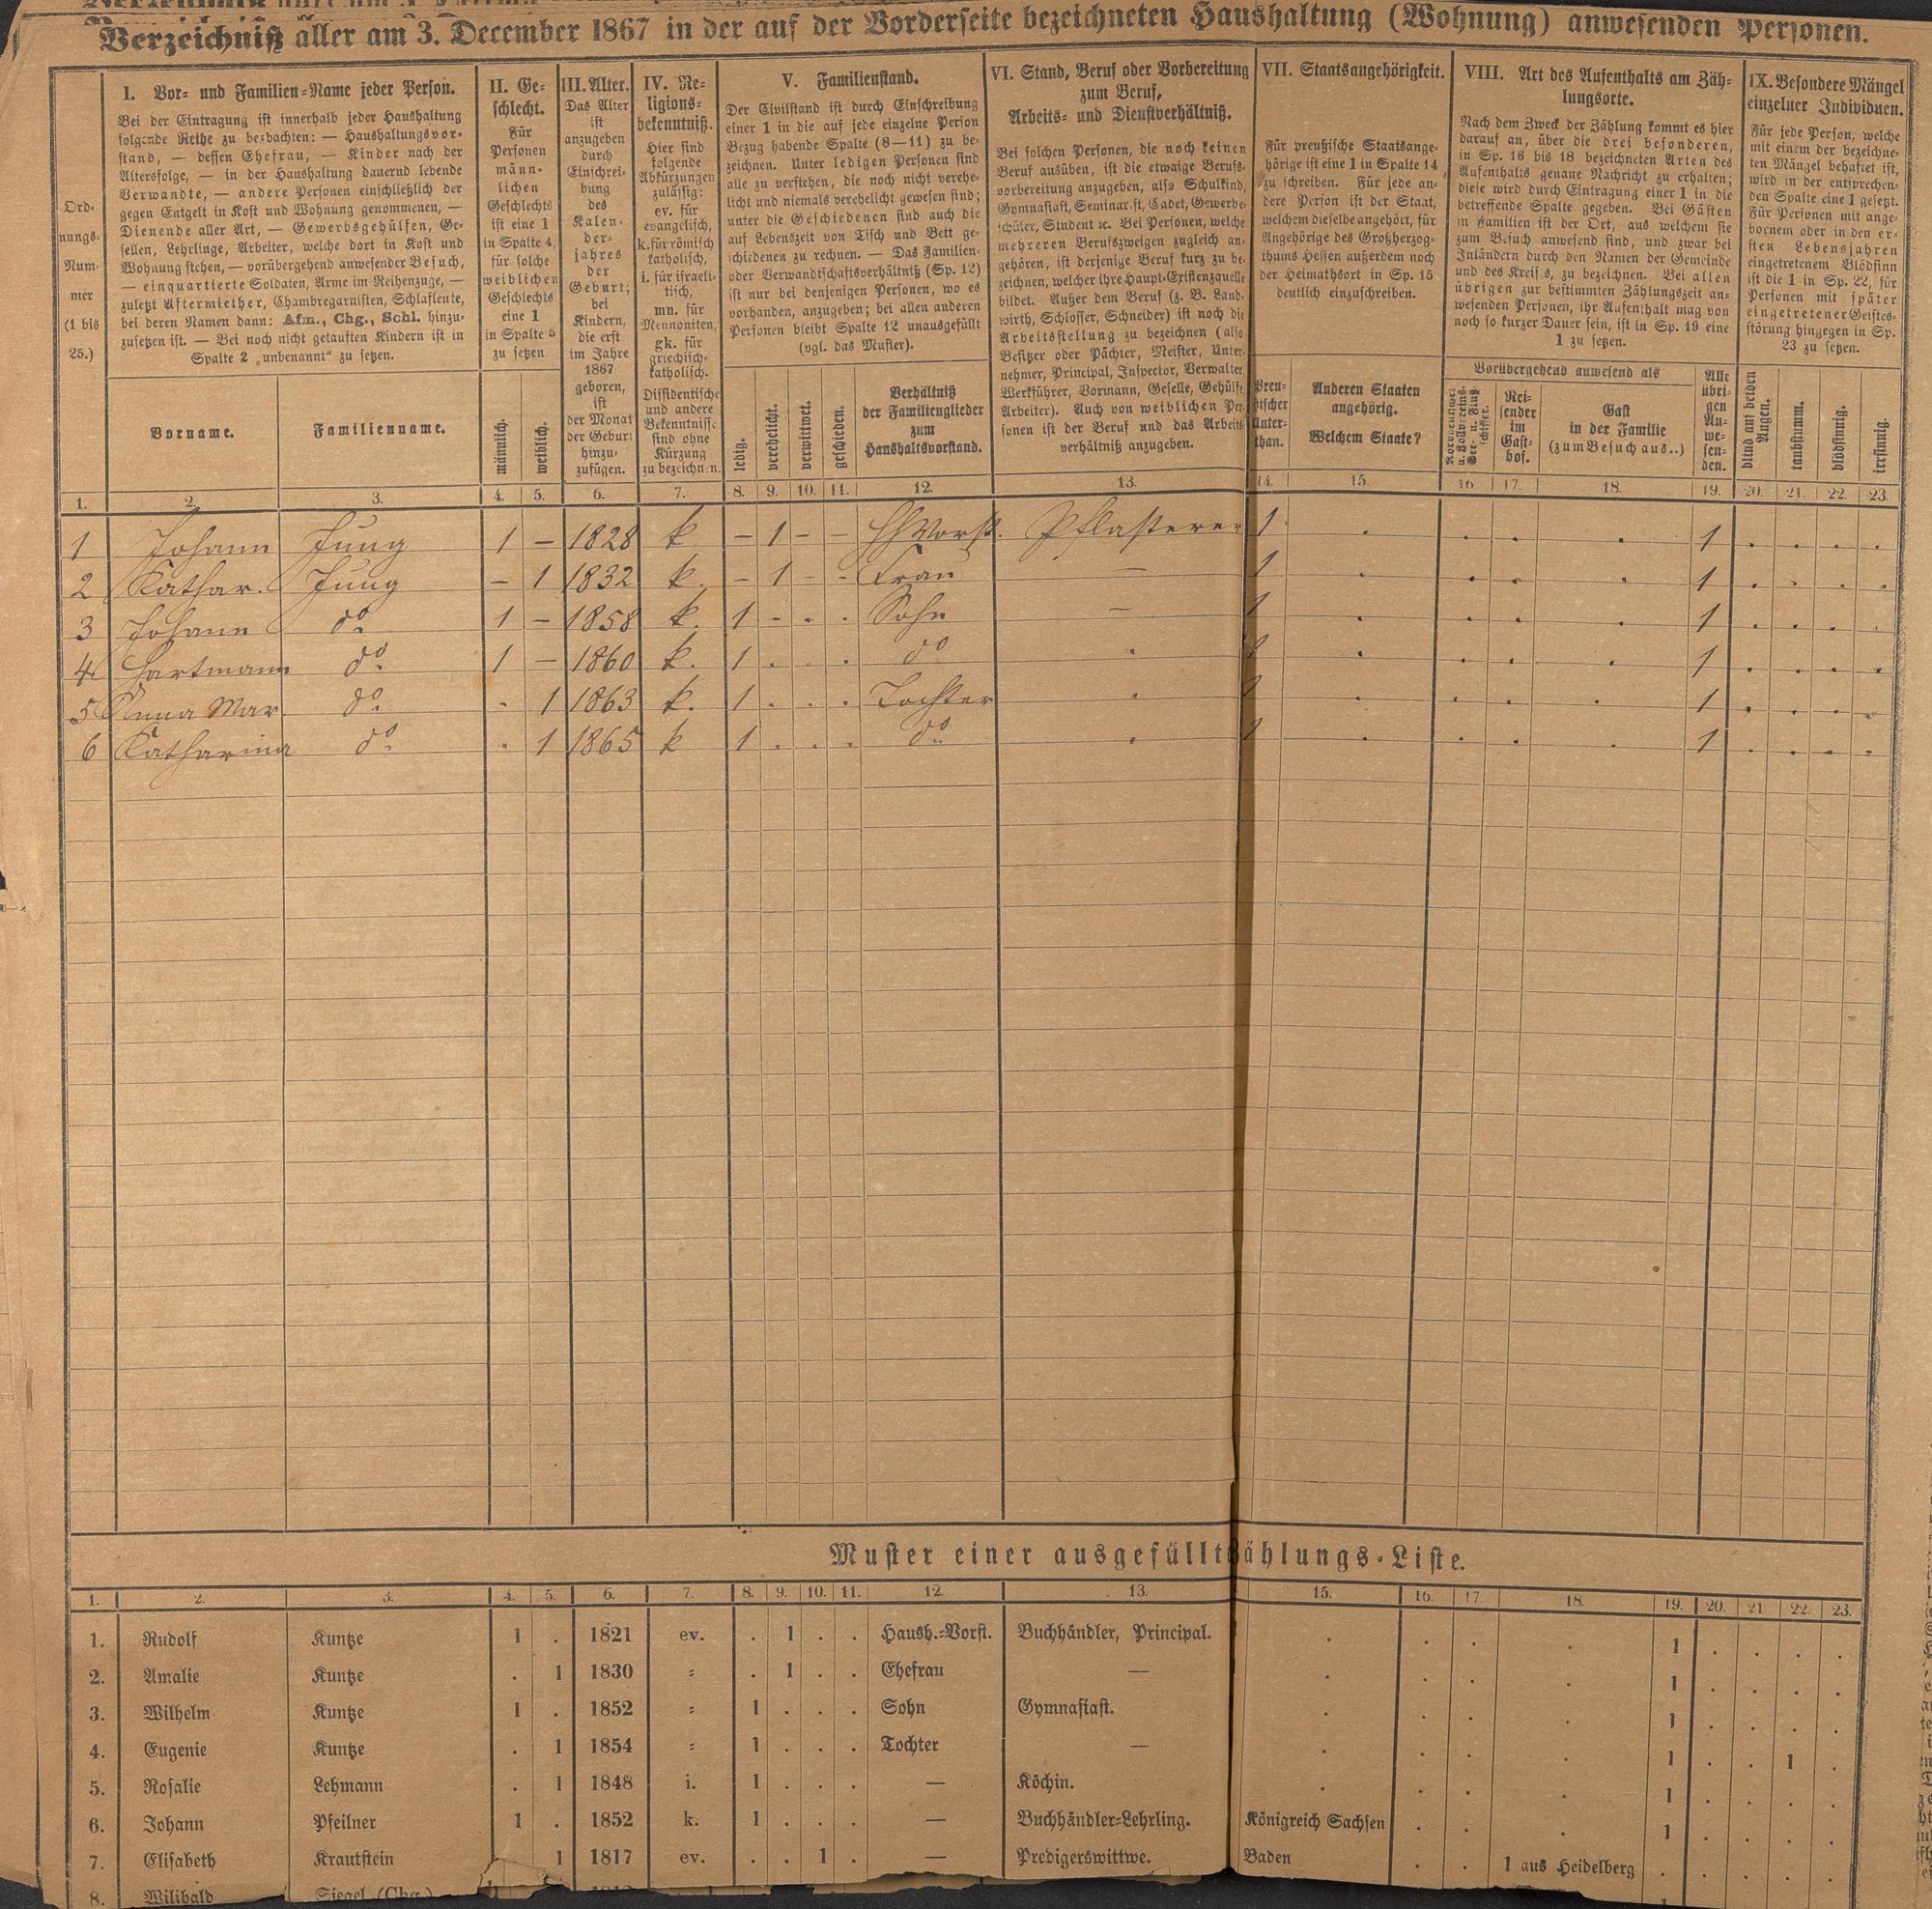 Verzeichniß aller am 3. December 1867 in der auf der Vorderseite bezeichneten Haushaltung (Wohnung) anwesenden Personen.
Ord-
nungs-
Num-
mer
(1 bis
25.)
I. Vor- und Familien-Name jeder Person.
Bei der Eintragung ist innerhalb jeder Haushaltung
folgende Reihe zu beobachten: — Haushaltungsvor-
stand, — dessen Ehefrau, — Kinder nach der
Altersfolge, — in der Haushaltung dauernd lebende
Verwandte, — andere Personen einschließlich der
gegen Entgelt in Kost und Wohnung genommenen, —
Dienende aller Art, — Gewerbsgehülfen, Ge-
sellen, Lehrlinge, Arbeiter, welche dort in Kost und
Wohnung stehen, — vorübergehend anwesender Besuch,
— einquartierte Soldaten, Arme im Reihenzuge, —
zuletzt Aftermiether, Chambregarnisten, Schlafleute,
bei deren Namen dann: Afm., Chg., Schl. hinzu-
zusetzen ist. — Bei noch nicht getauften Kindern ist in
Spalte 2 „unbenannt" zu setzen.
Vorname.
Familienname.
II. Ge-
schlecht.
Für
Personen
männ-
lichen
Geschlechts
ist eine 1
in Spalte 4,
für solche
weiblichen
Geschlechts
eine 1
in Spalte 5
zu setzen
männlich.
weiblich.
III. Alter.
Das Alter
ist
anzugeben
durch
Einschrei-
bung
des
Kalen-
der-
jahres
der
Geburt;
bei
Kindern,
die erst
im Jahre
1867
geboren,
ist
der Monat
der Geburt
hinzu-
zufügen.
IV. Re-
ligions-
bekenntniß.
Hier sind
folgende
Abkürzungen
zulässig:
ev. für
evangelisch,
k. für römisch
katholisch,
i. für israeli-
tisch,
mn. für
Mennoniten,
gk. für
griechisch-
katholisch.
Dissidentische
und andere
Bekenntnisse
sind ohne
Kürzung
zu bezeichnen.
V. Familienstand.
Der Civilstand ist durch Einschreibung
einer 1 in die auf jede einzelne Person
Bezug habende Spalte (8—11) zu be-
zeichnen. Unter ledigen Personen sind
alle zu verstehen, die noch nicht verehe-
licht und niemals verehelicht gewesen sind;
unter die Geschiedenen sind auch die
auf Lebenszeit von Tisch und Bett ge-
schiedenen zu rechnen. — Das Familien-
oder Verwandtschaftsverhältniß (Sp. 12)
ist nur bei denjenigen Personen, wo es
vorhanden, anzugeben; bei allen anderen
Personen bleibt Spalte 12 unausgefüllt
(vgl. das Muster).
ledig.
verehelicht.
verwittwet.
geschieden.
Verhältniß
der Familienglieder
zum
Haushaltsvorstand.
VI. Stand, Beruf oder Vorbereitung
zum Beruf,
Arbeits- und Dienstverhältniß.
Bei solchen Personen, die noch keinen
Beruf ausüben, ist die etwaige Berufs-
vorbereitung anzugeben, also Schulkind,
Gymnasiast, Seminarist, Cadet, Gewerbe-
schüler, Student ec. Bei Personen, welche
mehreren Berufszweigen zugleich an-
gehören, ist derjenige Beruf kurz zu be-
zeichnen, welcher ihre Haupt-Existenzquelle
bildet. Außer dem Beruf (z. B. Land-
wirth, Schlosser, Schneider) ist noch die
Arbeitsstellung zu bezeichnen (also
Besitzer oder Pächter, Meister, Unter-
nehmer, Principal, Inspector, Verwalter,
Werkführer, Vormann, Geselle, Gehülfe,
Arbeiter). Auch von weiblichen Per-
sonen ist der Beruf und das Arbeits
verhältniß anzugeben.
VII. Staatsangehörigkeit.
Für preußische Staatsange-
hörige ist eine 1 in Spalte 14
zu schreiben. Für jede an-
dere Person ist der Staat,
welchem dieselbe angehört, für
Angehörige des Großherzog-
thums Hessen außerdem noch
der Heimathsort in Sp. 15
deutlich einzuschreiben.
Preu-
ßischer
Unter-
than.
Anderen Staaten
angehörig.
Welchem Staate?
VIII. Art des Aufenthalts am Zäh-
lungsorte.
Nach dem Zweck der Zählung kommt es hier
darauf an, über die drei besonderen,
in Sp. 16 bis 18 bezeichneten Arten des
Aufenthalts genaue Nachricht zu erhalten;
diese wird durch Eintragung einer 1 in die
betreffende Spalte gegeben. Bei Gästen
in Familien ist der Ort, aus welchem sie
zum Besuch anwesend sind, und zwar bei
Inländern durch den Namen der Gemeinde
und des Kreises, zu bezeichnen. Bei allen
übrigen zur bestimmten Zählungszeit an-
wesenden Personen, ihr Aufenthalt mag von
noch so kurzer Dauer sein, ist in Sp. 19 eine
1 zu setzen.
Vorübergehend anwesend als
Rei-
sender
im
Gast-
hof.
Gast
in der Familie
(zum Besuch aus..)
Alle
übri-
gen
An-
we-
sen-
den.
IX. Besondere Mängel
einzelner Individuen.
Für jede Person, welche
mit einem der bezeichne-
ten Mängel behaftet ist,
wird in der entsprechen-
den Spalte eine 1 gesetzt.
Für Personen mit ange-
bornem oder in den er-
sten Lebensjahren
eingetretenem Blödsinn
ist die 1 in Sp. 22, für
Personen mit später
eingetretener Geistes-
störung hingegen in Sp.
23 zu setzen.
blind auf beiden
Augen.
taubstumm.
blödsinnig.
irrsinnig.
1. 2. 3. 4. 5. 6. 7. 8. 9. 10. 11. 12. 13. 14. 15. 16. 17. 18. 19. 20. 21. 22. 23.
1 Johann Jung 1 – 1828 k – 1 – – HVorst. Pflasterer 1 . . . . 1 . . . .
2 Kathar. Jung – 1 1832 k. – 1 – – Frau — 1 . . . . 1 . . . .
3 Johann do 1 – 1858 k. 1 – . . Sohn — 1 . . . . 1 . . . .
4 Hartmann do 1 – 1860 k. 1 . . . do . 1 . . . . 1 . . . .
5 Anna Mar. do . 1 1863 k. 1 . . . Tochter . 1 . . . . 1 . . . .
6 Katharina do . 1 1865 k 1 . . . do . 1 . . . . 1 . . . .
Muster einer ausgefüllt ählungs-Liste.
1. 2. 3. 4. 5. 6. 7. 8. 9. 10. 11. 12. 13. 15. 16. 17. 18. 19. 20. 21 22. 23.
1. Rudolf Kuntze 1 . 1821 ev. . 1 . . Haush.-Vorst. Buchhändler, Principal. . . . . 1 . . . .
2. Amalie Kuntze . 1 1830 = . 1 . . Ehefrau — . . . . 1 . . . .
3. Wilhelm Kuntze 1 . 1852 = 1 . . . Sohn Gymnasiast. . . . . 1 . . . .
4. Eugenie Kuntze . 1 1854 = 1 . . . Tochter — . . . . 1 . . 1 .
5. Rosalie Lehmann . 1 1848 i. 1 . . . — Köchin. . . . . 1 . . . .
6. Johann Pfeilner 1 . 1852 k. 1 . . . — Buchhändler-Lehrling. Königreich Sachsen . . . 1 . . . .
7. Elisabeth Krautstein 1 1817 ev. . . 1 . — Predigerswittwe. Baden . . 1 aus Heidelberg . . . . .
8. Wilibald Siegel (Chg.)